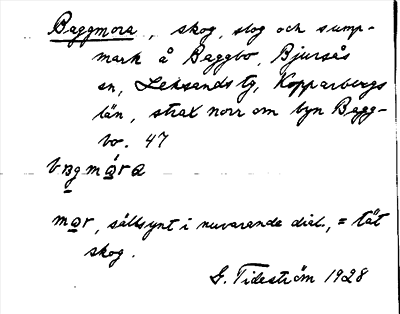 Baggmora, skog, slog och sump-
mark å Baggbo, Bjursås
sn, Leksands tg, Kopparbergs
län, strax norr om byn Bagg-
bo. 47
bagmó̱ra
mo̱r, sällsynt i nuvarande dial., = tät
skog.
G. Tideström 1928